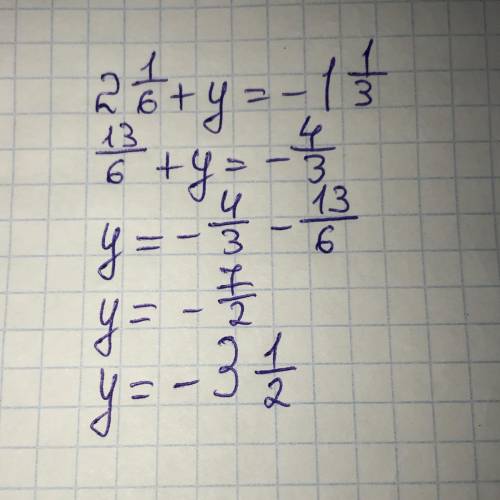 2 1/6 + y = - 1 1/3
13/6 + y = - 4/3
y = - 4/3 - 13/6
y = - 7/2
y = - 3 1/2